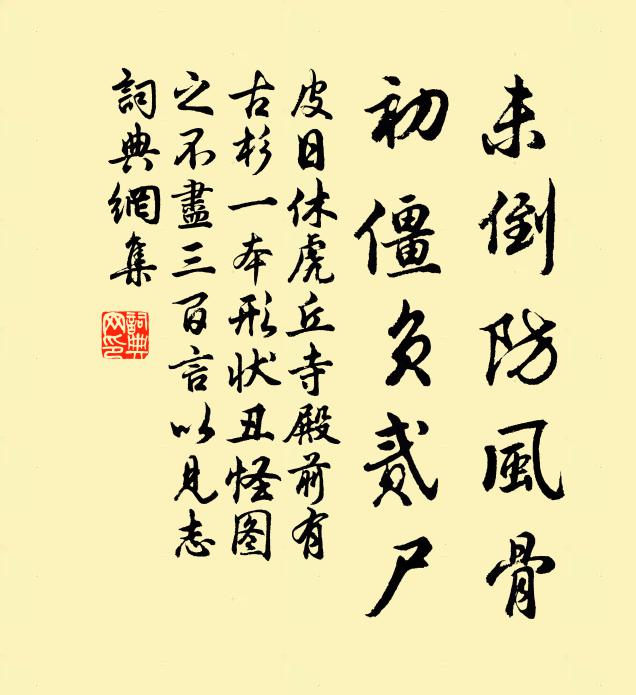 未倒防風骨
初僵負貳尸
皮日休虎丘寺殿前有
古杉一本形状丑怪图
之不盡三百言以見志
詞典網集
詞典網印